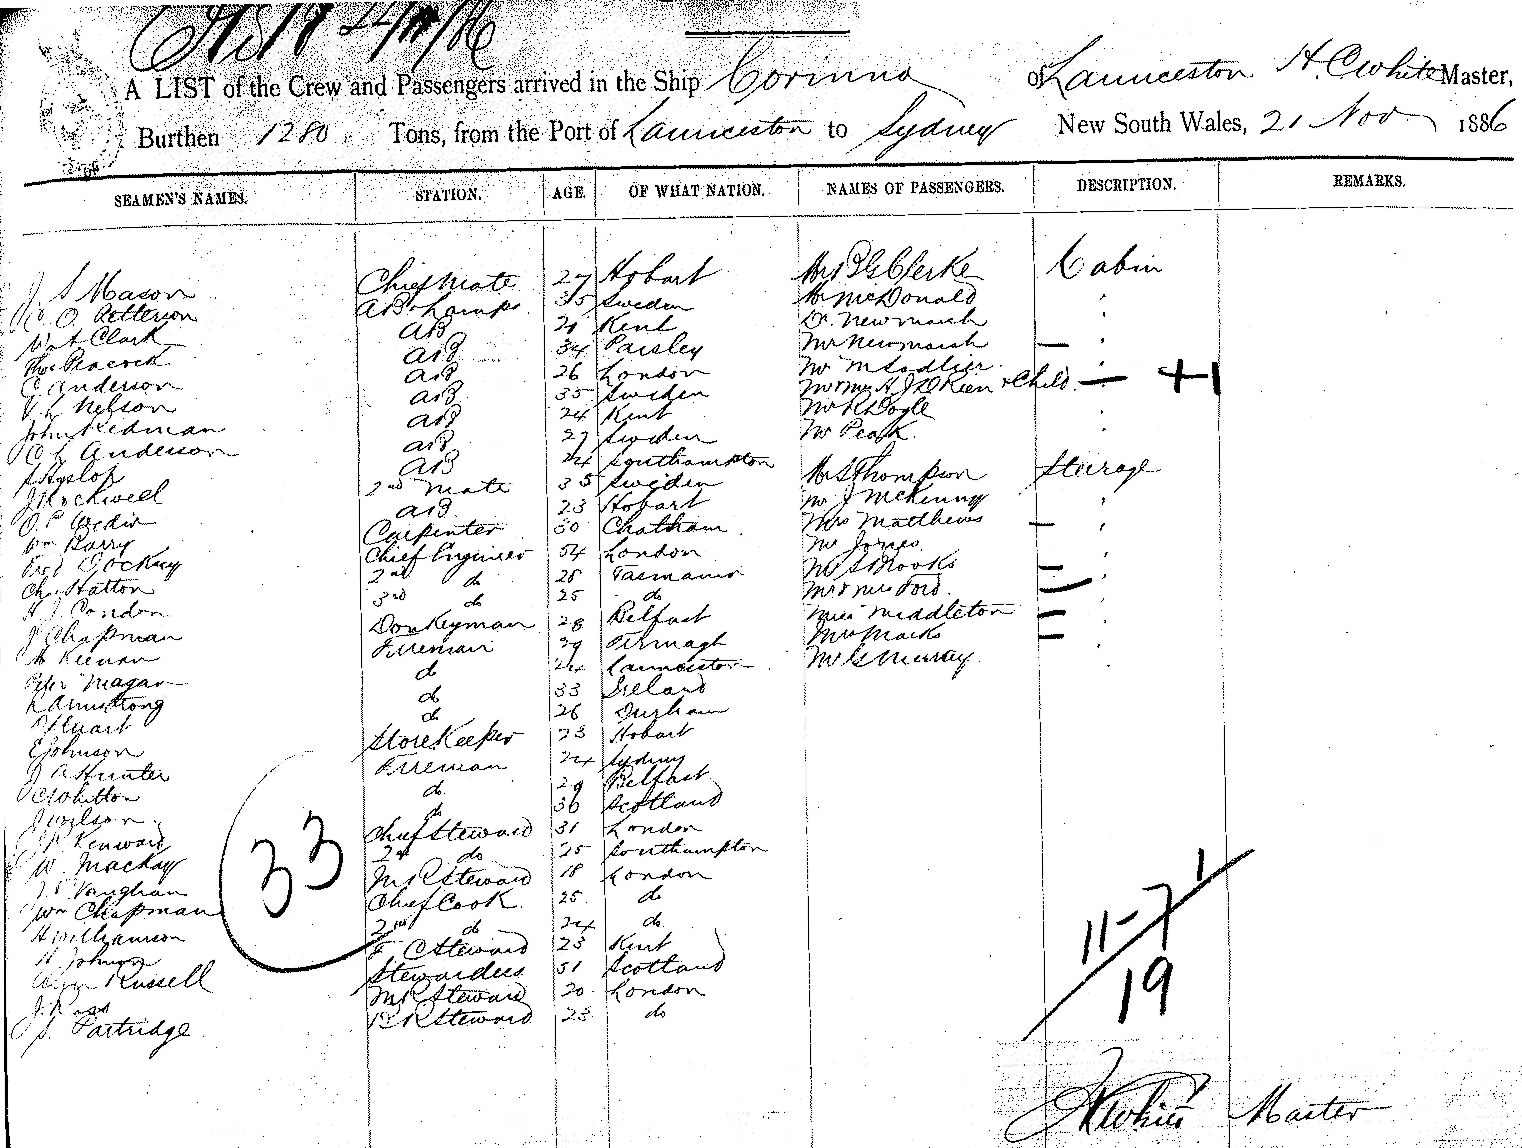 A LIST of the Crew and Passengers arrived in the Ship Corinna of Launceston H. C. White Master,
Burthen 1280 Tons, from the Port of Launceston to Sydney New South Wales, 21 Nov 1886
SEAMEN'S NAMES. STATION. AGE. OF WHAT NATION. NAMES OF PASSENGERS. DESCRIPTION. REMARKS.
J S Mason Chief Mate 27 Hobart Clerke Cabin
O Petterson AB & Lamps 35 Sweden Mr McDonald
Wm Clark AB 21 Kent Dr. Newmarsh
Thos Peacock AB 34 Paisley Mrs Newmarsh —
C Anderson AB 26 London Mr M Sadlier
Nelson AB 35 Sweden Mr & Mrs & Child — +1
John Redman AB 24 Kent Mr R Doyle
C L Anderson AB 27 Sweden Mr Peak
J Hyslop AB 24 Southampton Mr S Thompson Steerage
J Rockwell 2nd Mate 35 Sweden Mr J McKinny
O. P. AB 23 Hobart Mrs Matthews —
Wm Barry Carpenter 30 Chatham Mr Jones
Fred Chief Engineer 54 London Mr S Brooks —
Chas Hatton 2nd do 28 Tasmania Mr & Mrs Ford —
H J Condon 3rd do 25 do Miss Middleton —
J Chapman Donkeyman 28 Belfast Mrs Marks —
Keenan Fireman 39 Mr G Murray
Peter Magan do 24 Launceston
Armstrong do 33 Ireland
Stuart do 26 Durham
E Johnson Storekeeper 23 Hobart
J A Hunter Fireman 24 Sydney
C Whitton do 29 Belfast
J Wilson do 36 Scotland
J R Kenward Chief Steward 31 London
W. Mackay 2nd do 25 Southampton
Vaughan M R Steward 18 London
Wm Chapman Chief Cook 25 do
H Williamson 2nd do 24 do
H Johnson F C Steward 23 Kent
Russell Stewardess 31 Scotland
J. Ross M R Steward 20 London
S. Partridge Steward 23 do
33
11-7 1
19
H C White Master